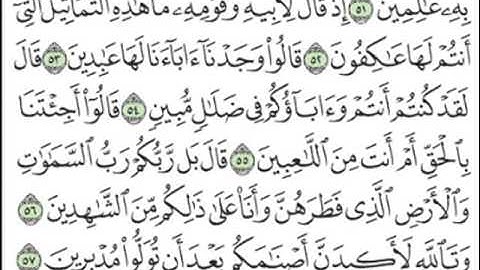 بِهِۦ عَٰلِمِينَ ٥١ إِذۡ قَالَ لِأَبِيهِ وَقَوۡمِهِۦ مَا هَٰذِهِ ٱلتَّمَاثِيلُ ٱلَّتِيٓ
أَنتُمۡ لَهَا عَٰكِفُونَ ٥٢ قَالُواْ وَجَدۡنَآ ءَابَآءَنَا لَهَا عَٰبِدِينَ ٥٣ قَالَ
لَقَدۡ كُنتُمۡ أَنتُمۡ وَءَابَآؤُكُمۡ فِي ضَلَٰلٖ مُّبِينٖ ٥٤ قَالُوٓاْ أَجِئۡتَنَا
بِٱلۡحَقِّ أَمۡ أَنتَ مِنَ ٱللَّٰعِبِينَ ٥٥ قَالَ بَل رَّبُّكُمۡ رَبُّ ٱلسَّمَٰوَٰتِ
وَٱلۡأَرۡضِ ٱلَّذِي فَطَرَهُنَّ وَأَنَا۠ عَلَىٰ ذَٰلِكُم مِّنَ ٱلشَّٰهِدِينَ ٥٦
وَتَٱللَّهِ لَأَكِيدَنَّ أَصۡنَٰمَكُم بَعۡدَ أَن تُوَلُّواْ مُدۡبِرِينَ ٥٧